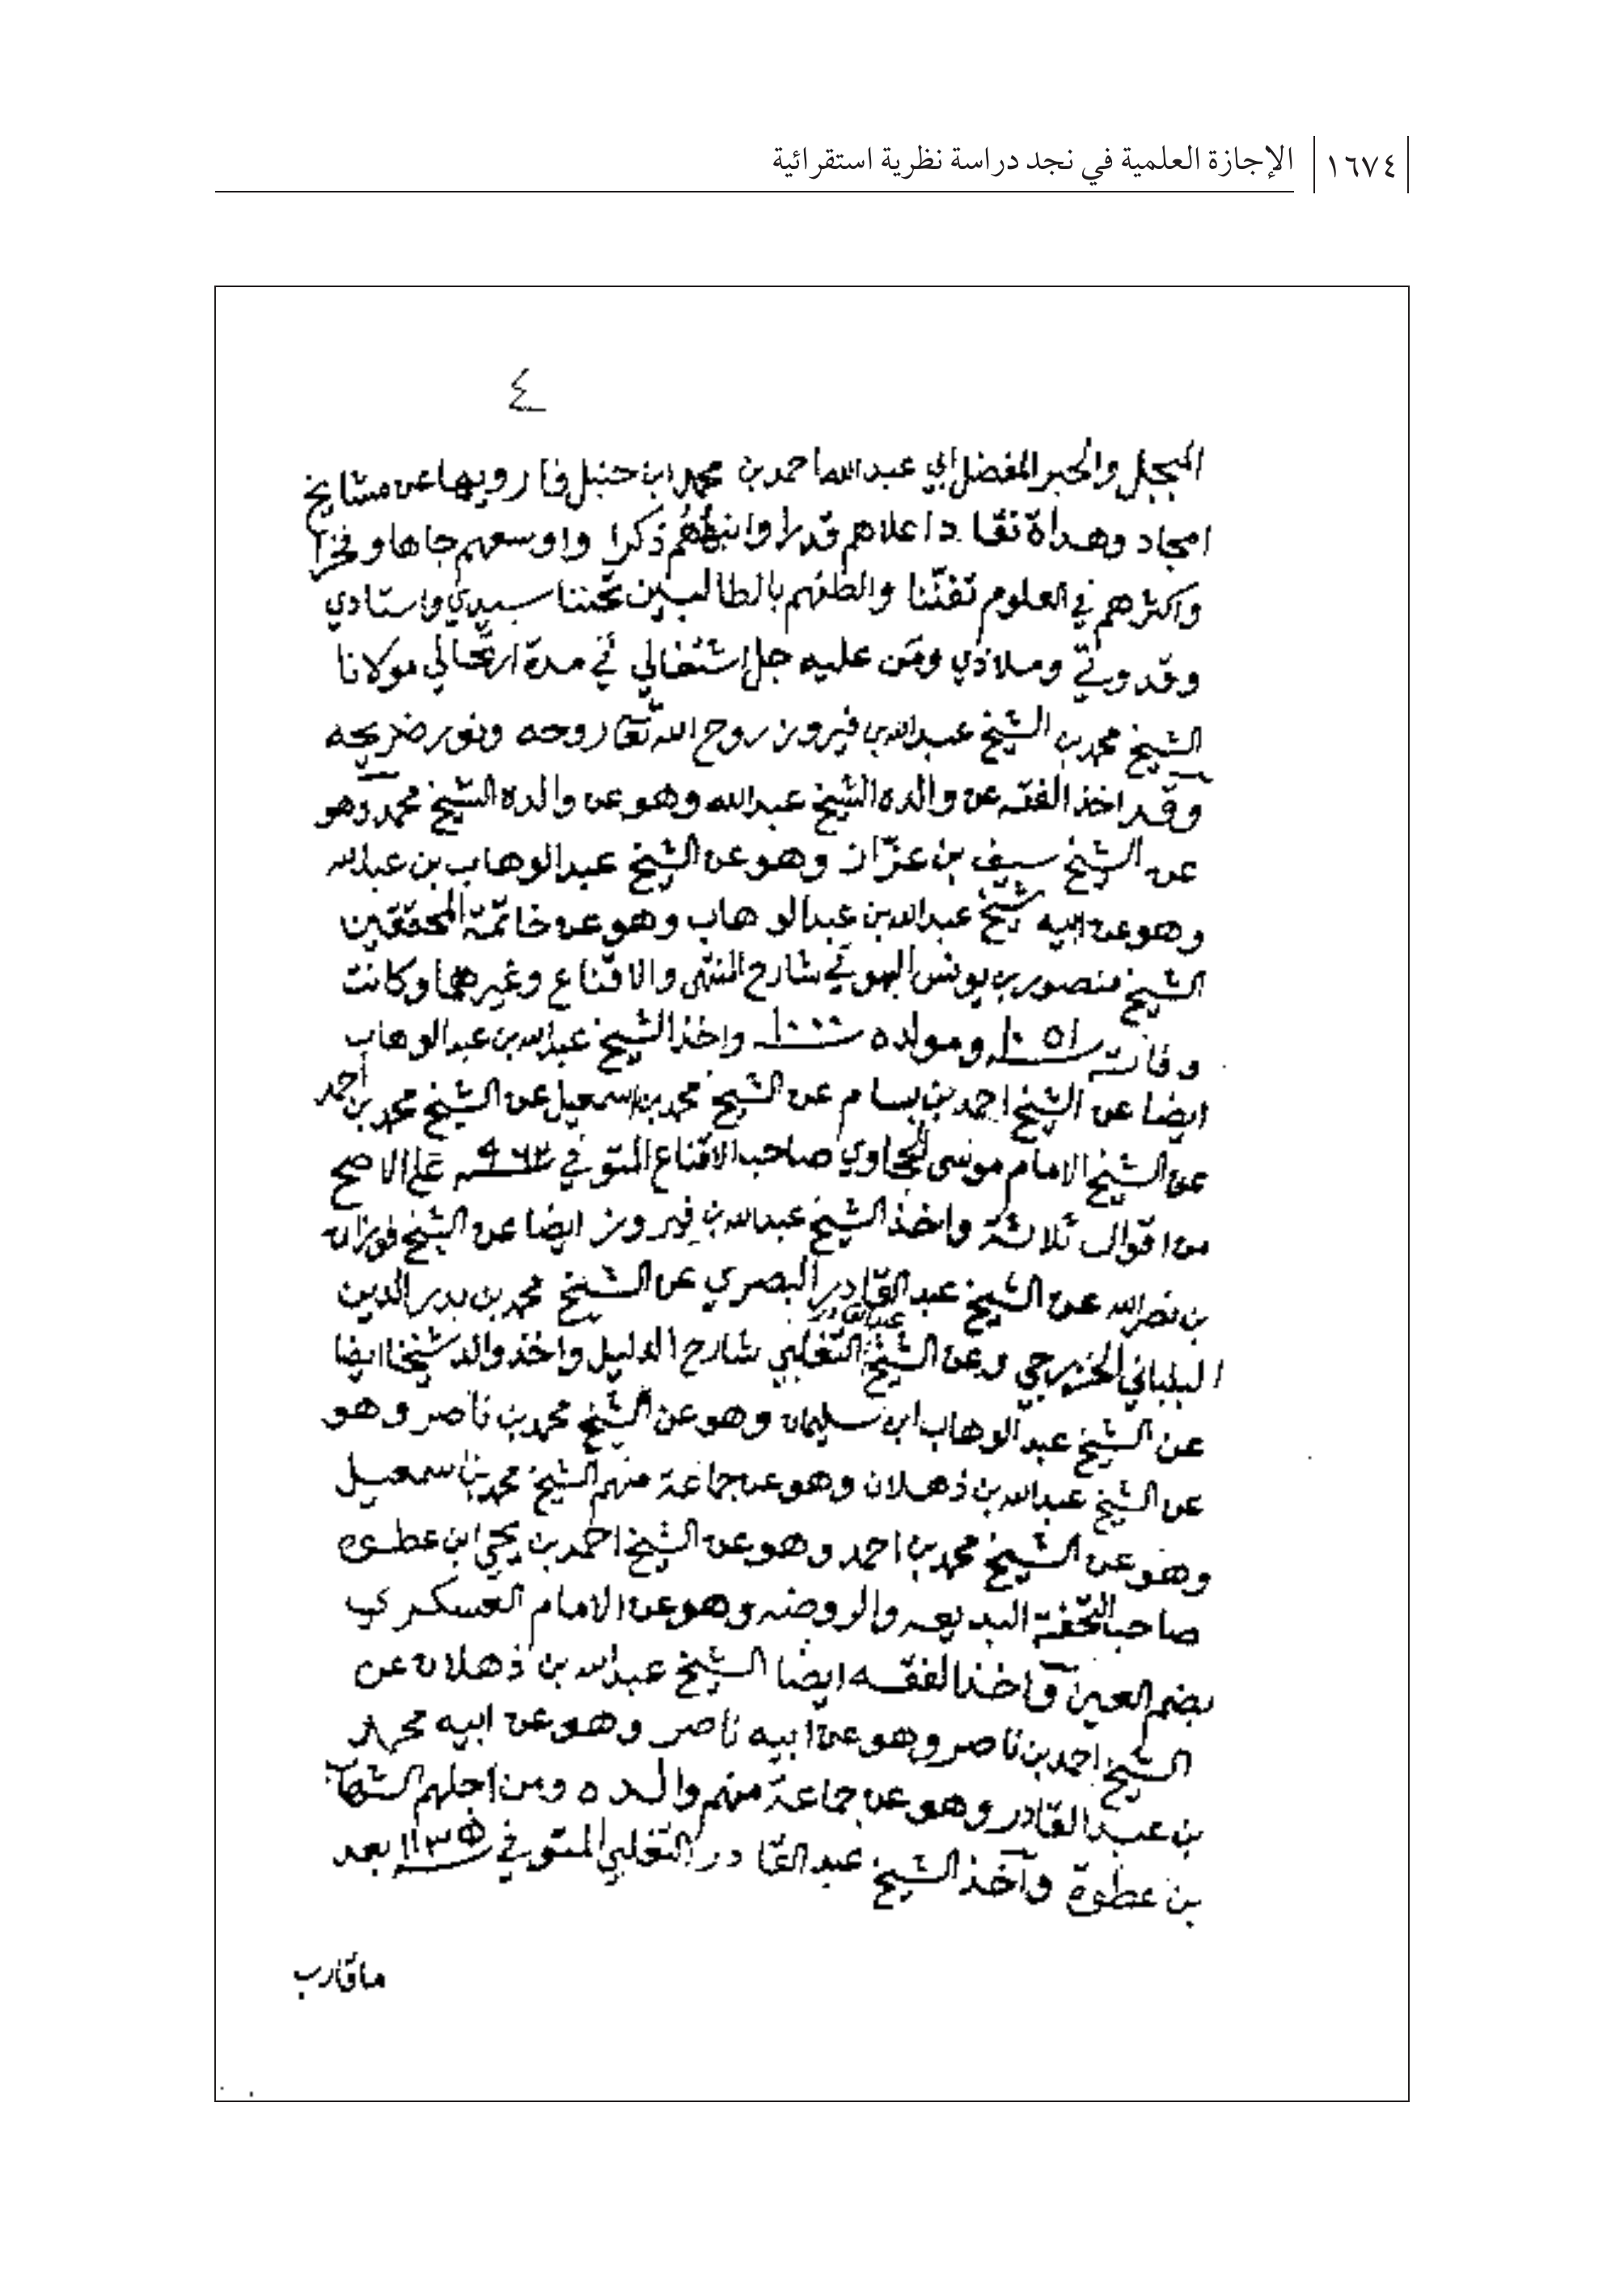 ١٦٧٤ الإجازة العلمية في نجد دراسة نظرية استقرائية
٤
المبجل والحبر المفضل ابي عبد الله احمد بن محمد ابن حنبل فارويها عن مشايخ
امجاد وهداة نقاد اعلاهم قدرا وانبههم ذكرا واوسعهم جاها وفخرا
واكثرهم في العلوم تفننا والطفهم بالطالبين تحننا سيدي واستادي
وقدوتي وملاذي ومن عليه جل اشتغالي في مدة ارتحالي مولانا
الشيخ محمد بن الشيخ عبد الله بن فيروز روح الله تعالى روحه ونور ضريحه
وقد اخذ الفقه عن والده الشيخ عبد الله وهو عن والده الشيخ محمد وهو
عن الشيخ سيف بن عزّاز وهو عن الشيخ عبد الوهاب بن عبد الله
وهو عن ابيه شيخ عبد الله بن عبد الوهاب وهو عن خاتمة المحققين
الشيخ منصور بن يونس البهوتي شارح المنتهى والاقناع وغيرهما وكانت
وفاته سنة ١٠٥١ ومولده سنة ١٠٠٠ واخذ الشيخ عبد الله بن عبد الوهاب
ايضا عن الشيخ احمد بن بسام عن الشيخ محمد بن اسمعيل عن الشيخ محمد بن أحمد
عن الشيخ الامام موسى الحجاوي صاحب الاقناع المتوفي سنة ٩٦٢ على الاصح
من اقوال ثلاثة واخذ الشيخ عبد الله بن فيروز ايضا عن الشيخ فوزان
بن نصر الله عن الشيخ عبد القادر البصري عن الشيخ محمد بن بدر الدين
البلباني الخزرجي وعن الشيخ عبد القادر التغلبي شارح الدليل واخذ والد شيخنا ايضا
عن الشيخ عبد الوهاب ابن سليمان وهو عن الشيخ محمد بن ناصر وهو
عن الشيخ عبد الله بن ذهلان وهو عن جماعة منهم الشيخ محمد بن اسمعيل
وهو عن الشيخ محمد بن احمد وهو عن الشيخ احمد بن يحيى ابن عطوه
صاحب التحفة البديعه والروضه وهو عن الامام العسكري
بضم العين وآخذ الفقه ايضا الشيخ عبد الله بن ذهلان عن
الشيخ احمد بن ناصر وهو عن ابيه ناصر وهو عن ابيه محمد
بن عبد القادر وهو عن جماعة منهم والده ومن اجلهم الشهاب
بن عطوة وآخذ الشيخ عبد القادر التغلبي المتوفي سنة ١١٣٥ بعد
ما قارب